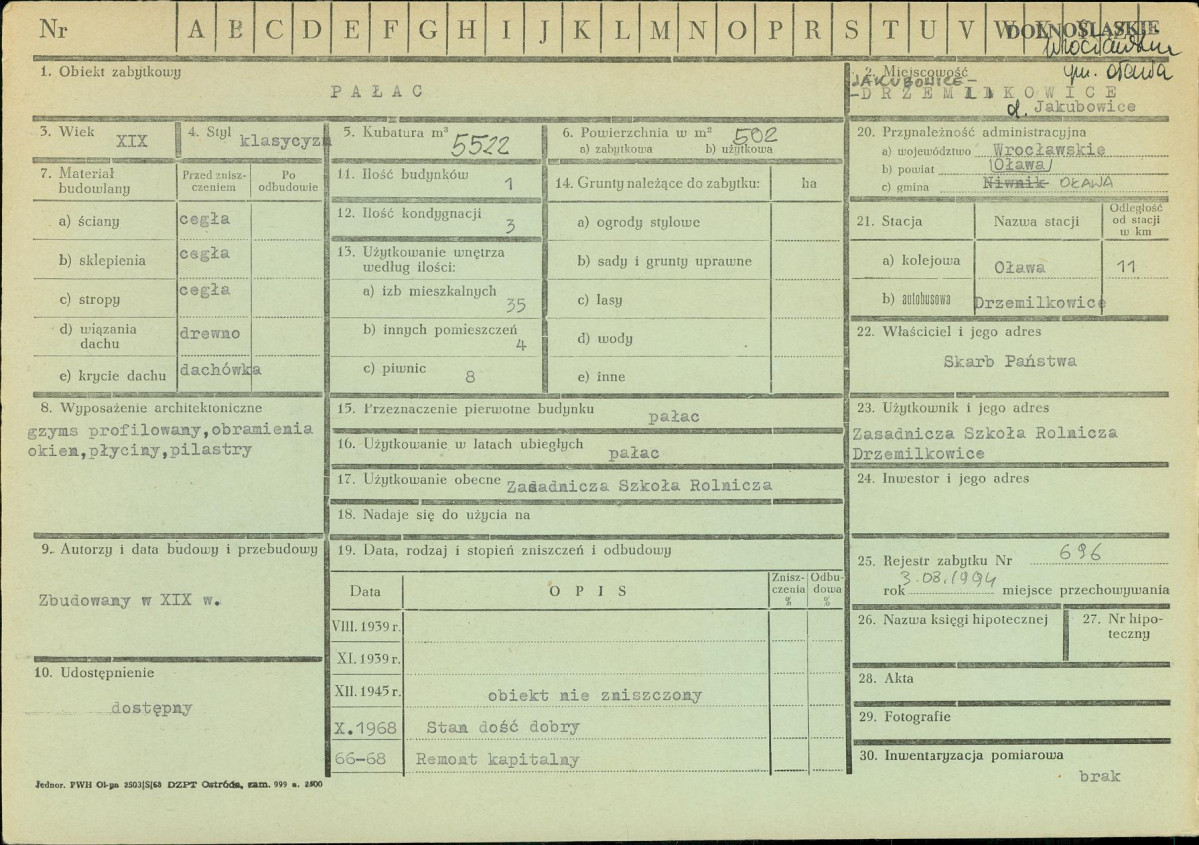 Nr A B C D E F G H I J K L M N O P R S T U V W X Y Z Ż
DOLNOŚLĄSKIE
Wrocławskie
gm. Oława
1. Obiekt zabytkowy
PAŁAC
2. Miejscowość
JAKUBOWICE-
-DRZEMLIKOWICE
d. Jakubowice
3. Wiek XIX
4. Styl klasycyzm
5. Kubatura m³ 5522
6. Powierzchnia w m² 502
a) zabytkowa b) użytkowa
7. Materiał budowlany
Przed zniszczeniem
Po odbudowie
a) ściany cegła
b) sklepienia cegła
c) stropy cegła
d) wiązania dachu drewno
e) krycie dachu dachówka
8. Wyposażenie architektoniczne
gzyms profilowany,obramienia
okien,płyciny,pilastry
9. Autorzy i data budowy i przebudowy
Zbudowany w XIX w.
10. Udostępnienie
dostępny
11. Ilość budynków 1
12. Ilość kondygnacji 3
13. Użytkowanie wnętrza
według ilości:
a) izb mieszkalnych 35
b) innych pomieszczeń 4
c) piwnic 8
14. Grunty należące do zabytku: ha
a) ogrody stylowe
b) sady i grunty uprawne
c) lasy
d) wody
e) inne
15. Przeznaczenie pierwotne budynku pałac
16. Użytkowanie w latach ubiegłych pałac
17. Użytkowanie obecne Zasadnicza Szkoła Rolnicza
18. Nadaje się do użycia na
19. Data, rodzaj i stopień zniszczeń i odbudowy
Data OPIS Zniszczenia % Odbudowa %
VIII. 1939 r.
XI. 1939 r.
XII. 1945 r. obiekt nie zniszczony
X.1968 Stan dość dobry
66-68 Remont kapitalny
20. Przynależność administracyjna
a) województwo Wrocławskie
b) powiat (Oława)
c) gmina Niwnik OŁAWA
21. Stacja Nazwa stacji Odległość od stacji w km
a) kolejowa Oława 11
b) autobusowa Drzemilkowice
22. Właściciel i jego adres
Skarb Państwa
23. Użytkownik i jego adres
Zasadnicza Szkoła Rolnicza
Drzemilkowice
24. Inwestor i jego adres
25. Rejestr zabytku Nr 696
rok 3.03.1994 miejsce przechowywania
26. Nazwa księgi hipotecznej
27. Nr hipoteczny
28. Akta
29. Fotografie
30. Inwentaryzacja pomiarowa
brak
Jednor. PWH Ol-pn 2503|S|68 DZPT Ostróda, zam. 999 n. 2500